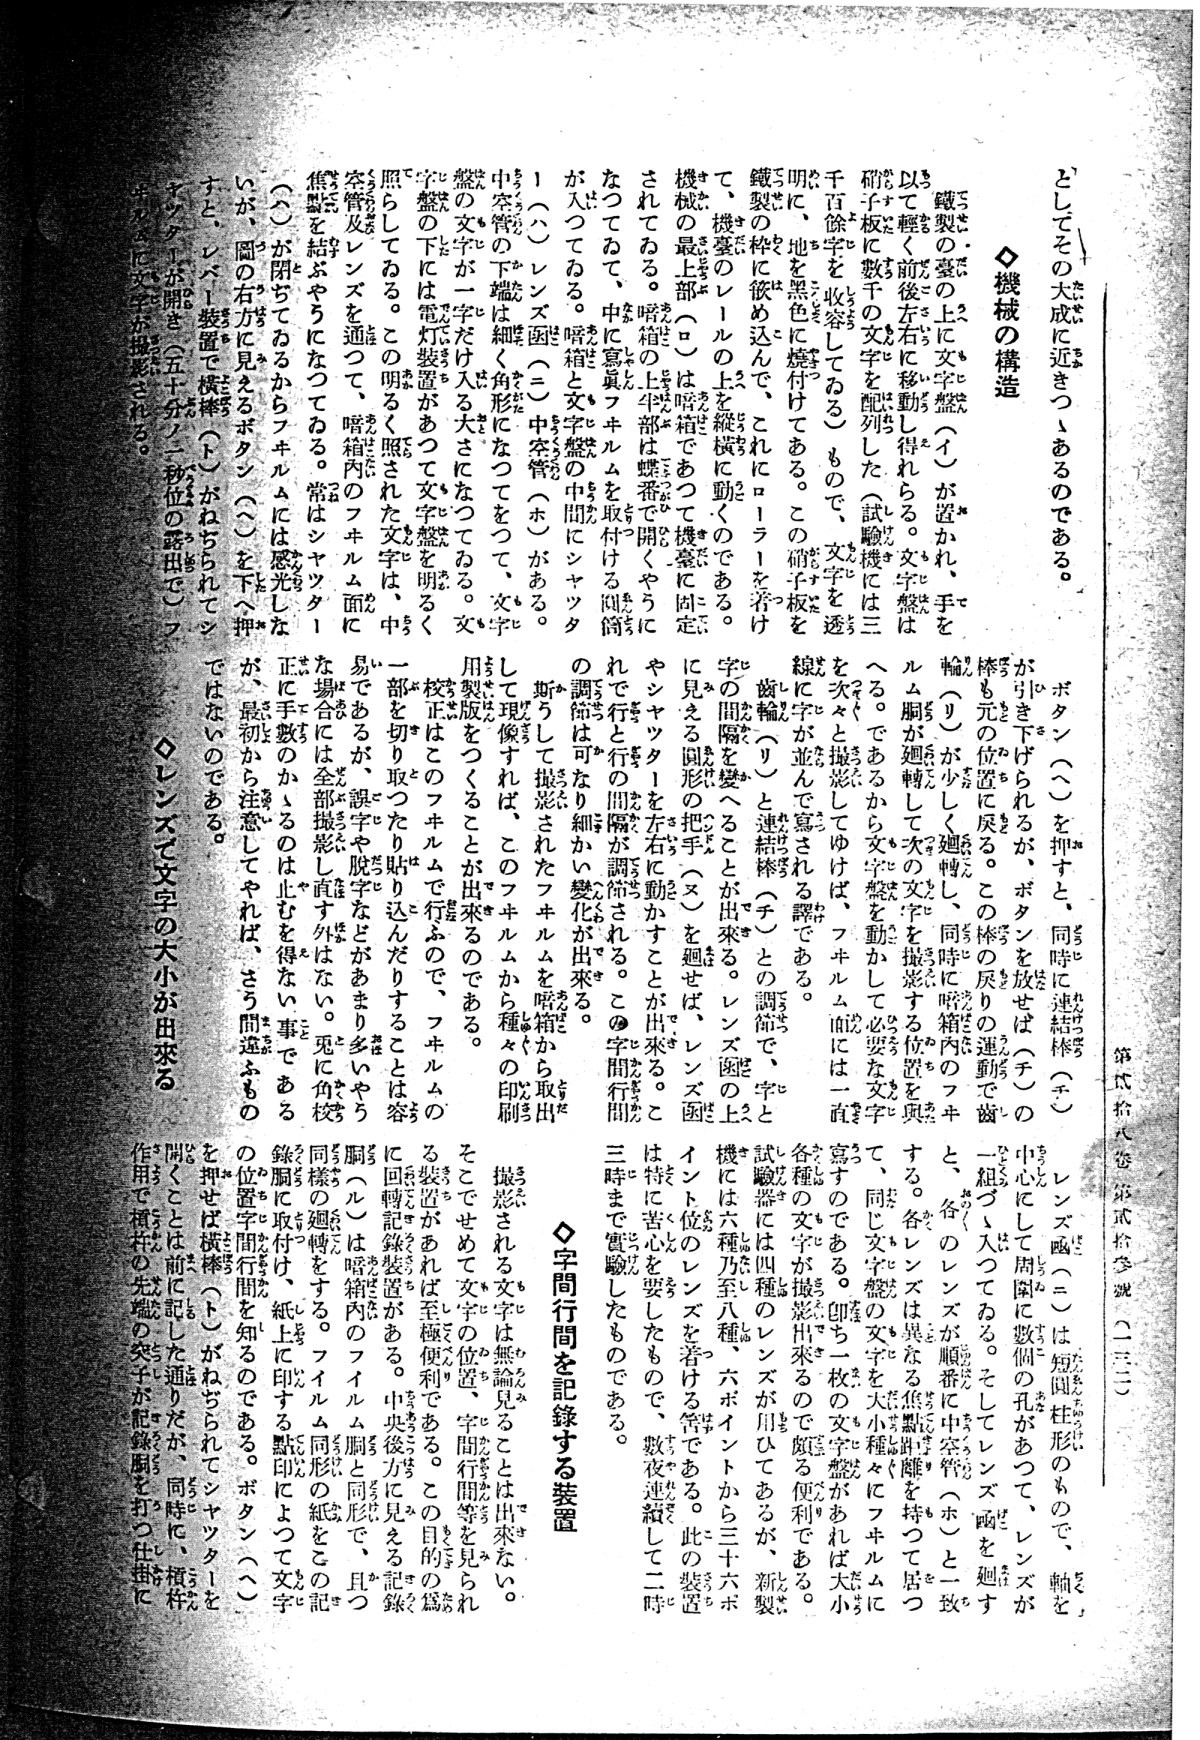 第貳拾八卷第貳拾參號（一三二）
としてその大成に近きつゝあるのである。
◇機械の構造
鐵製の臺の上に文字盤（イ）が置かれ、手を
以て輕く前後左右に移動し得れらる。文字盤は
硝子板に數千の文字を配列した（試驗機には三
千百餘字を收容してゐる）もので、文字を透
明に、地を黑色に燒付けてある。この硝子板を
鐵製の枠に篏め込んで、これにローラーを着け
て、機臺のレールの上を縱横に動くのである。
機械の最上部（ロ）は暗箱であつて機臺に固定
されてゐる。暗箱の上半部は蝶番で開くやうに
なつてゐて、中に寫眞フヰルムを取付ける圓筒
が入つてゐる。暗箱と文字盤の中間にシャッタ
ー（ハ）レンズ函（ニ）中空管（ホ）がある。
中空管の下端は細く角形になつてをつて、文字
盤の文字が一字だけ入る大さになつてゐる。文
字盤の下には電灯裝置があつて文字盤を明るく
照らしてゐる。この明るく照された文字は、中
空管及レンズを通つて、暗箱内のフヰルム面に
焦點を結ぶやうになつてゐる。常はシャツター
（ハ）が閉ぢてゐるからフヰルムには感光しな
いが、圖の右方に見えるボタン（ヘ）を下へ押
すと、レバー裝置で横棒（ト）がねぢられてシ
ヤツターが開き（五十分ノ一秒位の露出で）フ
ヰルムに文字が撮影される。
ボタン（ヘ）を押すと、同時に連結棒（チ）
が引き下げられるが、ボタンを放せば（チ）の
棒も元の位置に戻る。この棒の戻りの運動で齒
輪（リ）が少しく廻轉し、同時に暗箱内のフヰ
ルム胴が廻轉して次の文字を撮影する位置を與
へる。であるから文字盤を動かして必要な文字
を次々と撮影してゆけば、フヰルム面には一直
線に字が並んで寫される譯である。
齒輪（リ）と連結棒（チ）との調節で、字と
字の間隔を變へることが出來る。レンズ函の上
に見える圓形の把手（ヌ）を廻せば、レンズ函
やシャツターを左右に動かすことが出來る。こ
れで行と行の間隔が調節される。この字間行間
の調節は可なり細かい變化が出來る。
斯うして撮影されたフヰルムを暗箱から取出
して現像すれば、このフヰルムから種々の印刷
用製版をつくることが出來るのである。
校正はこのフヰルムで行ふので、フヰルムの
一部を切り取つたり貼り込んだりすることは容
易であるが、誤字や脱字などがあまり多いやう
な場合には全部撮影し直す外はない。兎に角校
正に手數のかゝるのは止むを得ない事である
が、最初から注意してやれば、さう間違ふもの
ではないのである。
◇レンズで文字の大小が出來る
レンズ函（ニ）は短圓柱形のもので、軸を
中心にして周圍に數個の孔があつて、レンズが
一組づゝ入つてゐる。そしてレンズ函を廻す
と、各のレンズが順番に中空管（ホ）と一致
する。各レンズは異なる焦點距離を持つて居つ
て、同じ文字盤の文字を大小種々にフヰルムに
寫すのである。卽ち一枚の文字盤があれば大小
各種の文字が撮影出來るので頗る便利である。
試驗器には四種のレンズが用ひてあるが、新製
機には六種乃至八種、六ポイントから三十六ポ
イント位のレンズを着ける筈である。此の裝置
は特に苦心を要したもので、數夜連續して二時
三時まで實驗したものである。
◇字間行間を記錄する裝置
撮影される文字は無論見ることは出來ない。
そこでせめて文字の位置、字間行間等を見られ
る裝置があれば至極便利である。この目的の爲
に回轉記錄裝置がある。中央後方に見える記錄
胴（ル）は暗箱内のフイルム胴と同形で、且つ
同樣の廻轉をする。フイルム同形の紙をこの記
錄胴に取付け、紙上に印する點印によつて文字
の位置字間行間を知るのである。ボタン（ヘ）
を押せば横棒（ト）がねぢられてシャツターを
開くことは前に記した通りだが、同時に、槓杆
作用で槓杵の先端の突子が記錄胴を打つ仕掛に